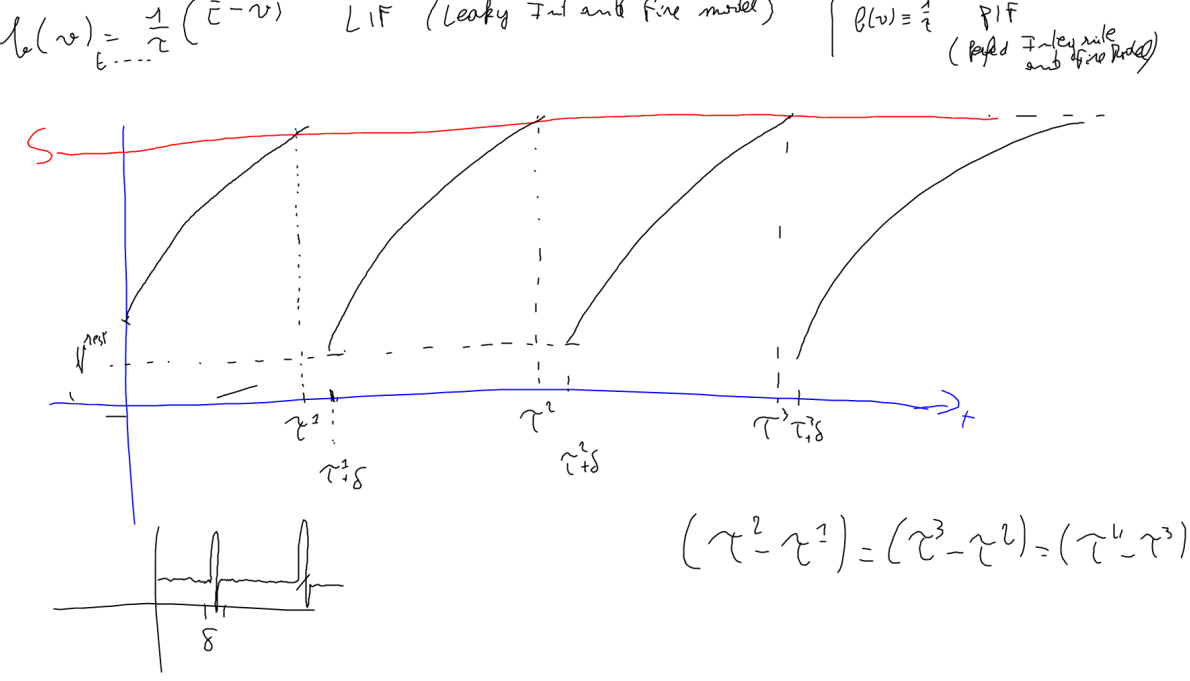 b(v) = 1/τ (E - v) LIF (Leaky Int and Fire model) | b(v) ≡ 1/τ PIF
E.....
(Perfect Integrate
and Fire Model)
S
V^rest
t
τ^1 τ^2 τ^3 τ^3+δ
τ^1+δ τ^2+δ
(τ^2 - τ^1) = (τ^3 - τ^2) = (τ^4 - τ^3)
δ